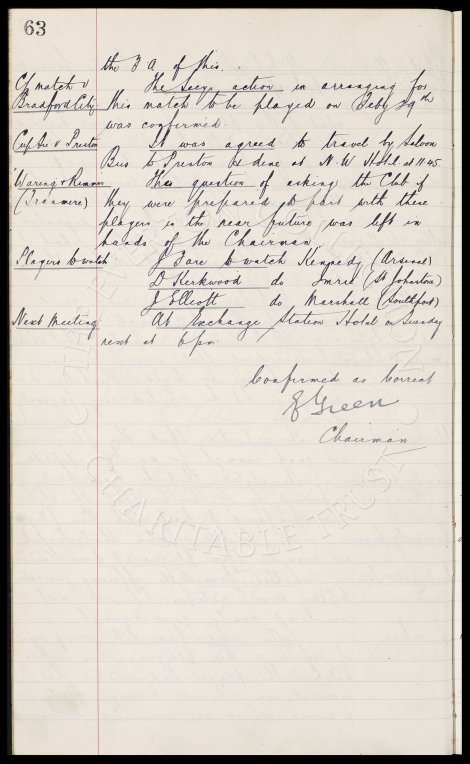 63
the F A of this.
Cp match v The Secys action in arranging for
Bradford City this match to be played on Feby 29th
was confirmed.
Cup tie v Preston It was agreed to travel by Saloon
Bus to Preston & dine at N. W Hotel at 11 45
Waring & Rimmer The question of asking the Club if
(Tranmere) they were prepared to part with these
players in the near future was left in
hands of the Chairman
Players to watch J Bare to watch Kennedy (Arsenal)
D Kirkwood do Imrie (St Johnstone)
J Elliott do Marshall (Southport)
Next Meeting At Exchange Station Hotel on Tuesday
next at 6 pm.
Confirmed as Correct
E Green
Chairman
CHARITABLE TRUST